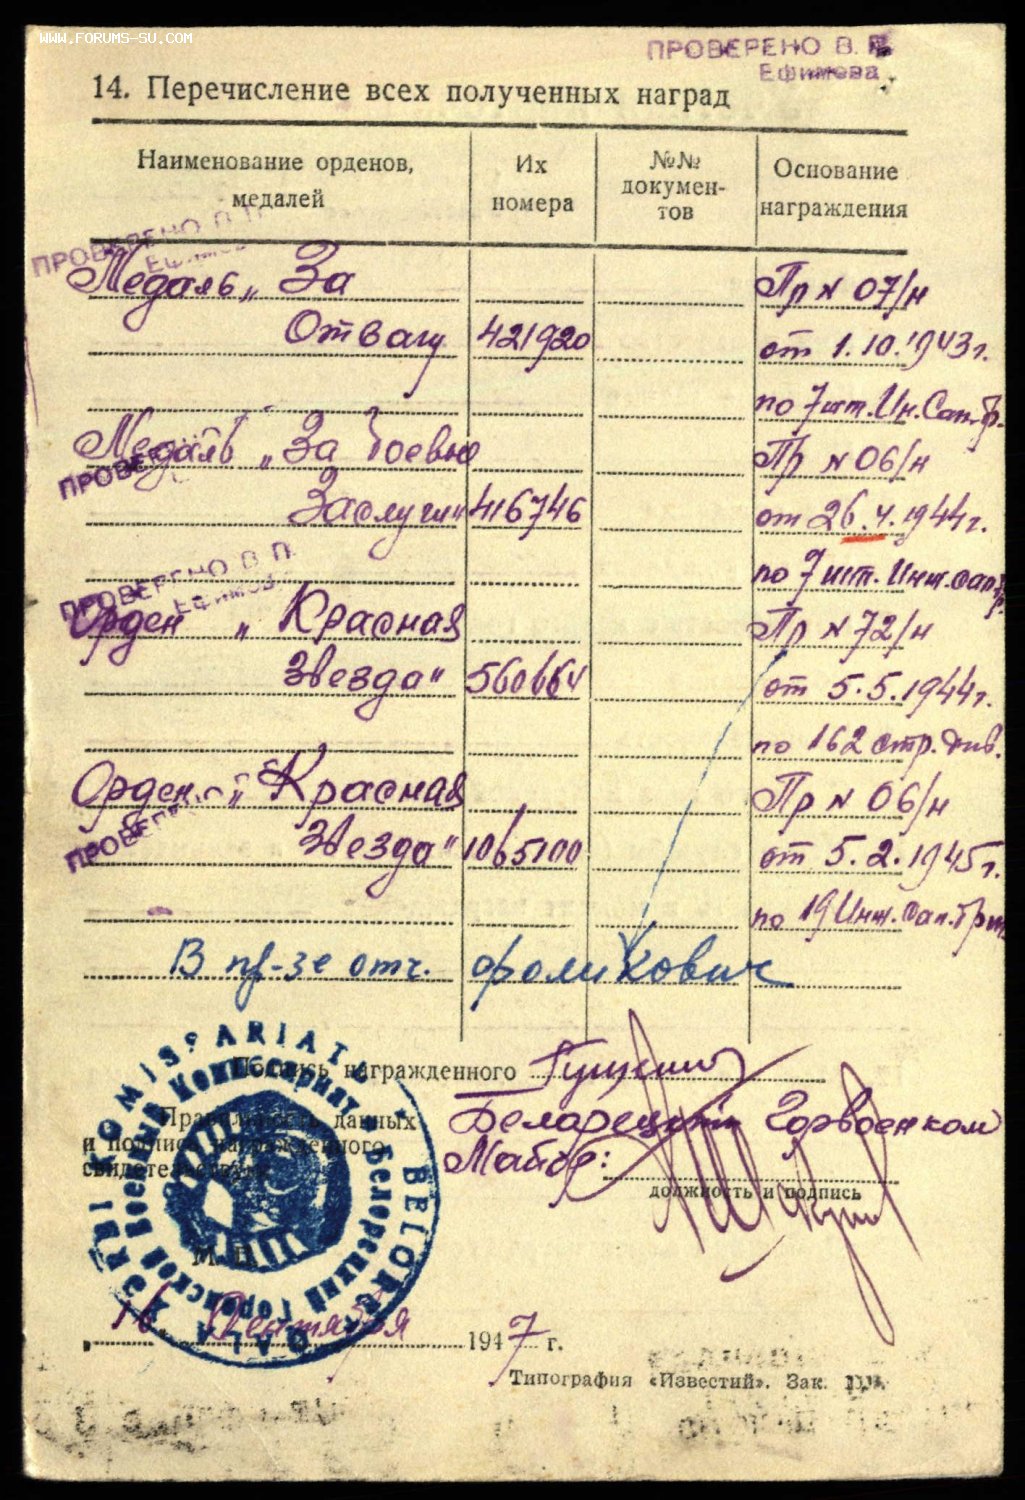 WWW.FORUMS-SU.COM
ПРОВЕРЕНО В. П.
Ефимова
14. Перечисление всех полученных наград
Наименование орденов, медалей
Их номера
№№ докумен-тов
Основание награждения
ПРОВЕРЕНО В. П.
Ефимов
Медаль „За
Пр N 07/н
Отвагу
421920
от 1.10.1943г.
по 7 шт. Ин. Сап. бр.
Медаль „За боевые
Пр N 06/н
ПРОВЕ
Заслуги"
416746
от 26.4.1944г.
по 7 шт. Инж. сап. бр.
ПРОВЕРЕНО В. П.
Ефимов
Орден „Красная
Пр N 72/н
Звезда"
560664
от 5.5.1944г.
по 162 стр. див.
Орден „Красная
Пр N 06/н
ПРОВЕРЕНО
Звезда"
1065100
от 5.2.1945г.
по 19 Инж. Сап.
В пр-зе отч. фоликович
Подпись награжденного
Правильность данных
и подпись награжденного
свидетельствую
Белорецкий Горвоенком
Майор:
должность и подпись
М. П.
Белорецкий Городской Военный Комиссариат
16 Сентября 1947 г.
Типография «Известий». Зак.